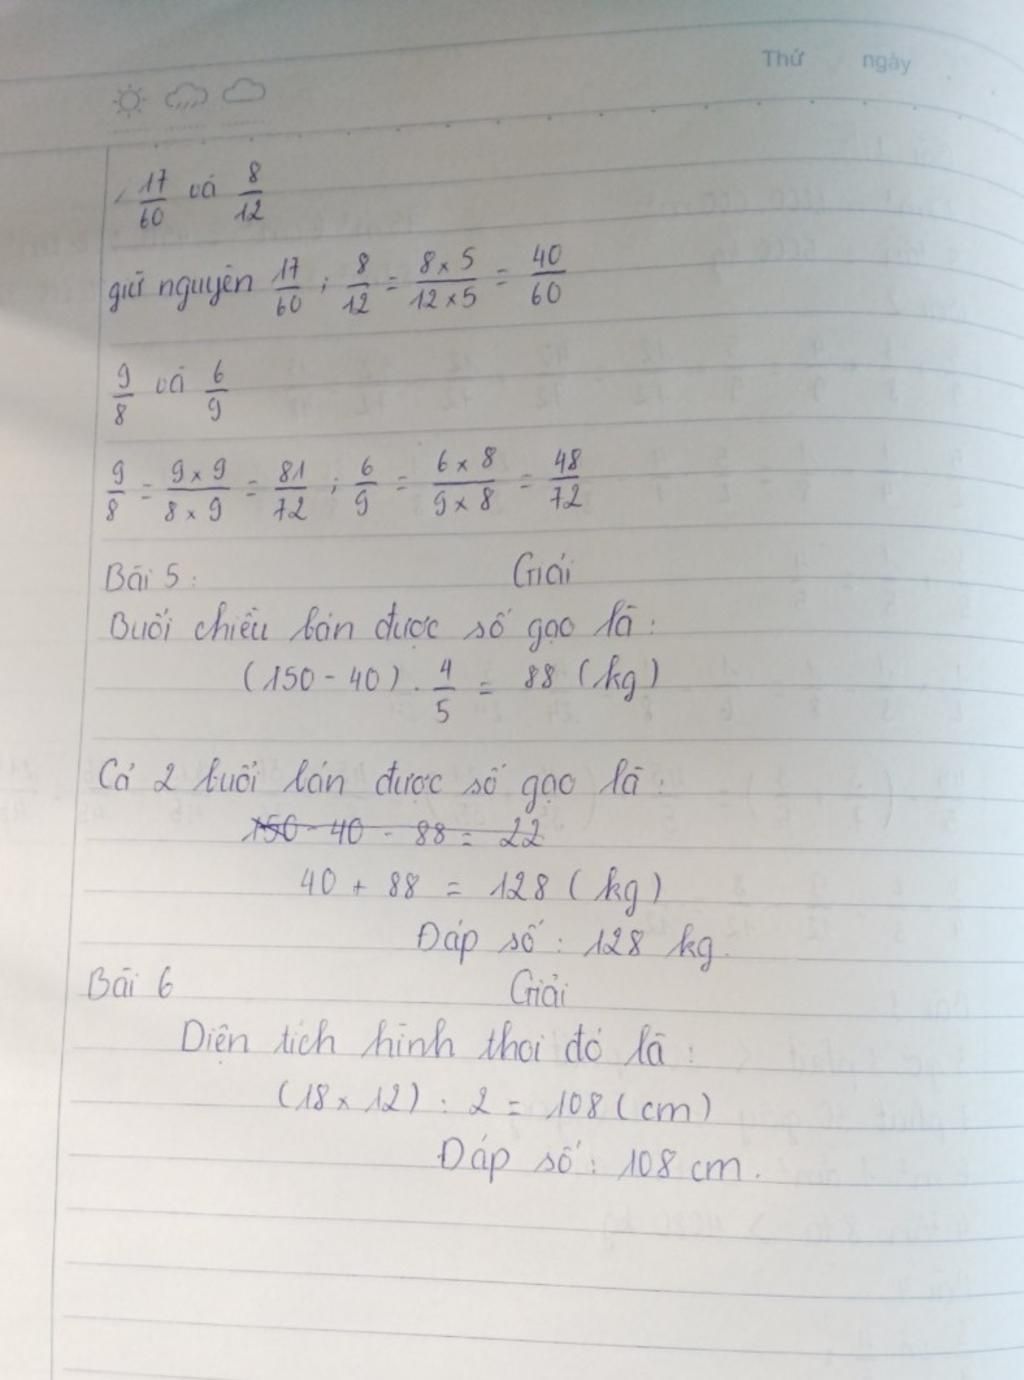 Thứ ngày
17/60 và 8/12
giữ nguyên 17/60 ; 8/12 = 8 x 5/12 x 5 = 40/60
9/8 và 6/9
9/8 = 9 x 9/8 x 9 = 81/72 ; 6/9 = 6 x 8/9 x 8 = 48/72
Bài 5 : Giải
Buổi chiều bán được số gạo là :
(150 - 40) . 4/5 = 88 (kg)
Cả 2 buổi bán được số gạo là :
150 - 40 - 88 = 22
40 + 88 = 128 (kg)
Đáp số : 128 kg.
Bài 6 Giải
Diện tích hình thoi đó là :
(18 x 12) : 2 = 108 (cm)
Đáp số : 108 cm.